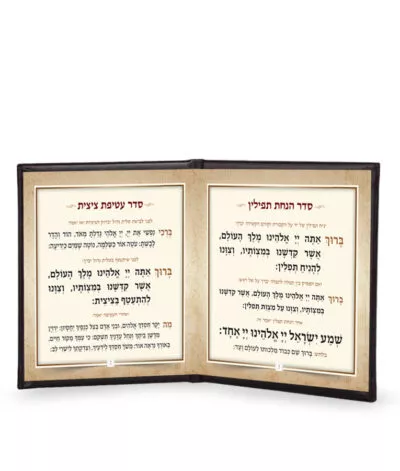 סדר הנחת תפילין
בָּרוּךְ אַתָּה יְיָ אֱלֹהֵינוּ מֶלֶךְ הָעוֹלָם,
אֲשֶׁר קִדְּשָׁנוּ בְּמִצְוֹתָיו, וְצִוָּנוּ
לְהָנִיחַ תְּפִלִּין:
בָּרוּךְ אַתָּה יְיָ אֱלֹהֵינוּ מֶלֶךְ הָעוֹלָם, אֲשֶׁר קִדְּשָׁנוּ
בְּמִצְוֹתָיו, וְצִוָּנוּ עַל מִצְוַת תְּפִלִּין:
שְׁמַע יִשְׂרָאֵל יְיָ אֱלֹהֵינוּ יְיָ אֶחָד:
בָּרוּךְ שֵׁם כְּבוֹד מַלְכוּתוֹ לְעוֹלָם וָעֶד:
סדר עטיפת ציצית
בָּרְכִי נַפְשִׁי אֶת יְיָ, יְיָ אֱלֹהַי גָּדַלְתָּ מְּאֹד, הוֹד וְהָדָר
לָבָשְׁתָּ: עֹטֶה אוֹר כַּשַּׂלְמָה, נוֹטֶה שָׁמַיִם כַּיְרִיעָה:
בָּרוּךְ אַתָּה יְיָ אֱלֹהֵינוּ מֶלֶךְ הָעוֹלָם,
אֲשֶׁר קִדְּשָׁנוּ בְּמִצְוֹתָיו, וְצִוָּנוּ
לְהִתְעַטֵּף בְּצִיצִית:
מַה יָּקָר חַסְדְּךָ אֱלֹהִים, וּבְנֵי אָדָם בְּצֵל כְּנָפֶיךָ יֶחֱסָיוּן: יִרְוְיֻן
מִדֶּשֶׁן בֵּיתֶךָ וְנַחַל עֲדָנֶיךָ תַשְׁקֵם: כִּי עִמְּךָ מְקוֹר חַיִּים,
בְּאוֹרְךָ נִרְאֶה אוֹר: מְשֹׁךְ חַסְדְּךָ לְיֹדְעֶיךָ, וְצִדְקָתְךָ לְיִשְׁרֵי לֵב: